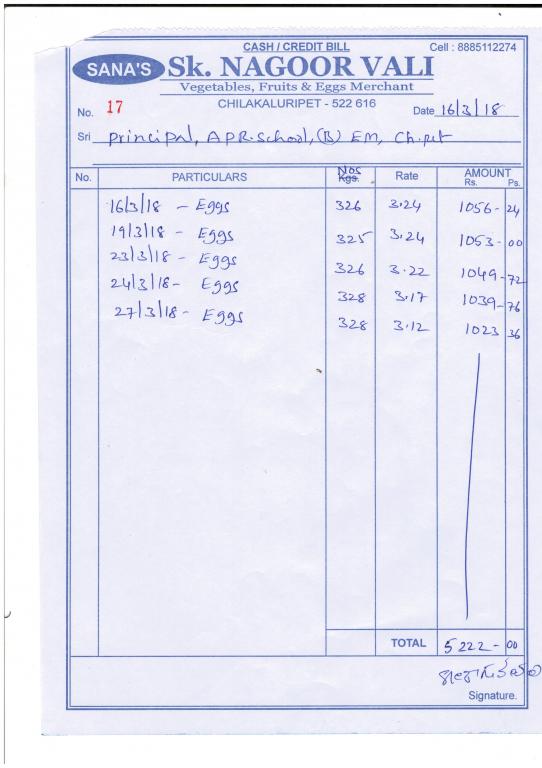 CASH / CREDIT BILL Cell : 8885112274
SANA'S Sk. NAGOOR VALI
Vegetables, Fruits & Eggs Merchant
CHILAKALURIPET - 522 616
No. 17 Date 16/3/18
Sri Principal, A P R. School, (B) EM, Ch.pet
No. PARTICULARS Nos Kgs. Rate AMOUNT
Rs. Ps.
16/3/18 - Eggs 326 3.24 1056- 24
19/3/18 - Eggs 325 3.24 1053- 00
23/3/18 - Eggs 326 3.22 1049- 72
24/3/18 - Eggs 328 3.17 1039- 76
27/3/18 - Eggs 328 3.12 1023 36
TOTAL 5222- 00
Signature.